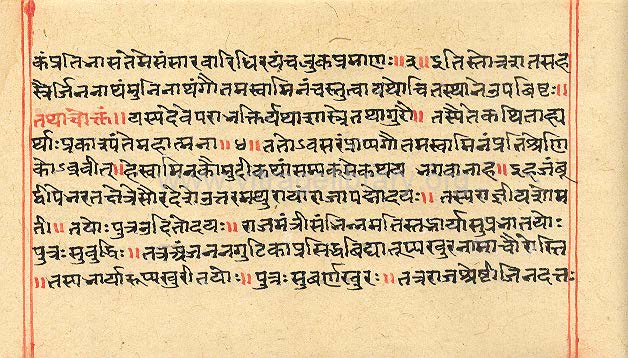 कंप्रतिनासतेमेसंसारवारिधिरयंचलुकप्रमाणः॥३॥इतिस्तोत्रशतसह
स्रैर्जिननाथंमुनिनाथंगौतमस्वामिनंचस्तुत्वायथोचितस्थानेउपविष्टः॥
तथाचोक्तं॥यस्यदेवेपराभक्तिर्यथाशास्त्रेतथागुरौ॥तस्यैतेकथिताह्य
र्थाःप्रकाशंतेमहात्मना॥४॥ततोऽवसरंप्राप्यगौतमस्वामिनंप्रतिश्रेणि
कोऽब्रवीत्॥हेस्वामिन्कौमुदीकथां भगवानाह॥इहजंबू
द्वीपेभरतक्षेत्रेसौरदेशेउत्तरमथुरायांराजापद्मोदयः॥तस्यराज्ञीयशोम
ती॥तयोःपुत्रउदितोदयः॥राजमंत्रीसंभिन्नमतिस्तद्भार्यासुप्रभातयोः
पुत्रःसुबुद्धिः॥तत्रअंजनगुटिकाप्रसिद्धविद्यारूप्यखुरनामाचौरोस्ति
॥तस्यभार्यारूप्यखुरीतयोः॥पुत्रःसुवर्णखुरः॥तत्रराजश्रेष्ठीजिनदत्तः